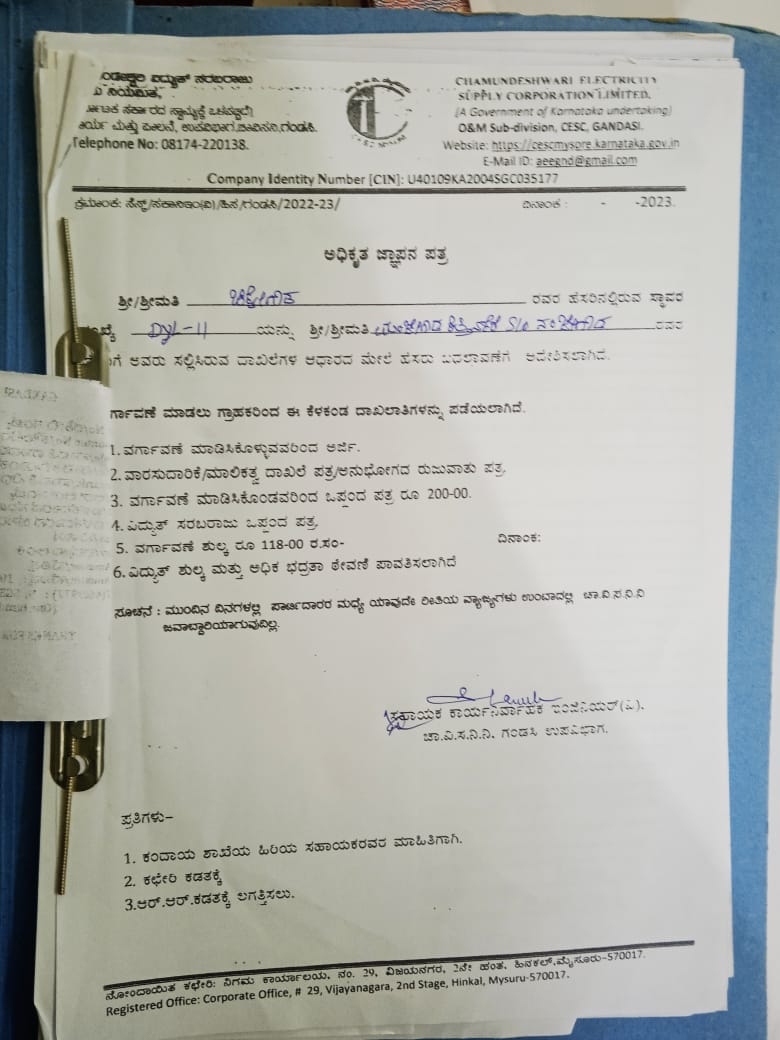 ವಿದ್ಯುತ್ ಸರಬರಾಜು
ನಿಯಮಿತ,
ಸರ್ಕಾರದ ಸ್ವಾಮ್ಯಕ್ಕೆ ಒಳಪಟ್ಟಿದೆ)
ಕಾರ್ಯ ಮತ್ತು ಪಾಲನೆ, ಉಪವಿಭಾಗ,ಚಾವಿಸನಿ,ಗಂಡಸಿ.
Telephone No: 08174-220138.
CHAMUNDESHWARI ELECTRICITY
SUPPLY CORPORATION LIMITED,
(A Government of Karnataka undertaking)
O&M Sub-division, CESC, GANDASI.
Website: https://cescmysore.karnataka.gov.in
E-Mail ID: aeegnd@gmail.com
Company Identity Number [CIN]: U40109KA2004SGC035177
ಕ್ರಮಾಂಕ: ಸೆಸ್ಕ್/ಸಕಾನಿಇಂ(ವಿ)/ಹಿಸ/ಗಂಡಸಿ/2022-23/ ದಿನಾಂಕ : - -2023.
ಅಧಿಕೃತ ಜ್ಞಾಪನ ಪತ್ರ
ಶ್ರೀ/ಶ್ರೀಮತಿ ರವರ ಹೆಸರಿನಲ್ಲಿರುವ ಸ್ಥಾವರ
DyL-11 ಯನ್ನು ಶ್ರೀ/ಶ್ರೀಮತಿ S/o ರವರ
ಅವರು ಸಲ್ಲಿಸಿರುವ ದಾಖಲೆಗಳ ಆಧಾರದ ಮೇಲೆ ಹೆಸರು ಬದಲಾವಣೆಗೆ ಆದೇಶಿಸಲಾಗಿದೆ.
ರ್ಗಾವಣೆ ಮಾಡಲು ಗ್ರಾಹಕರಿಂದ ಈ ಕೆಳಕಂಡ ದಾಖಲಾತಿಗಳನ್ನು ಪಡೆಯಲಾಗಿದೆ.
1. ವರ್ಗಾವಣೆ ಮಾಡಿಸಿಕೊಳ್ಳುವವರಿಂದ ಅರ್ಜಿ.
2. ವಾರಸುದಾರಿಕೆ/ಮಾಲಿಕತ್ವ ದಾಖಲೆ ಪತ್ರ/ಅನುಭೋಗದ ರುಜುವಾತು ಪತ್ರ.
3. ವರ್ಗಾವಣೆ ಮಾಡಿಸಿಕೊಂಡವರಿಂದ ಒಪ್ಪಂದ ಪತ್ರ ರೂ 200-00.
4. ವಿದ್ಯುತ್ ಸರಬರಾಜು ಒಪ್ಪಂದ ಪತ್ರ.
5. ವರ್ಗಾವಣೆ ಶುಲ್ಕ ರೂ 118-00 ರ.ಸಂ- ದಿನಾಂಕ:
6. ವಿದ್ಯುತ್ ಶುಲ್ಕ ಮತ್ತು ಅಧಿಕ ಭದ್ರತಾ ಠೇವಣಿ ಪಾವತಿಸಲಾಗಿದೆ
ಸೂಚನೆ : ಮುಂದಿನ ದಿನಗಳಲ್ಲಿ ಪಾರ್ಟಿದಾರರ ಮಧ್ಯೆ ಯಾವುದೇ ರೀತಿಯ ವ್ಯಾಜ್ಯಗಳು ಉಂಟಾದಲ್ಲಿ ಚಾ.ವಿ.ಸ.ನಿ.ನಿ
ಜವಾಬ್ದಾರಿಯಾಗುವುದಿಲ್ಲ.
ಸಹಾಯಕ ಕಾರ್ಯನಿರ್ವಾಹಕ ಇಂಜಿನಿಯರ್(ವಿ).
ಚಾ.ವಿ.ಸ.ನಿ.ನಿ. ಗಂಡಸಿ ಉಪವಿಭಾಗ.
ಪ್ರತಿಗಳು–
1. ಕಂದಾಯ ಶಾಖೆಯ ಹಿರಿಯ ಸಹಾಯಕರವರ ಮಾಹಿತಿಗಾಗಿ.
2. ಕಛೇರಿ ಕಡತಕ್ಕೆ
3.ಆರ್.ಆರ್.ಕಡತಕ್ಕೆ ಲಗತ್ತಿಸಲು.
ನೋಂದಾಯಿತ ಕಛೇರಿ: ನಿಗಮ ಕಾರ್ಯಾಲಯ, ನಂ. 29, ವಿಜಯನಗರ, 2ನೇ ಹಂತ, ಹಿನಕಲ್,ಮೈಸೂರು–570017.
Registered Office: Corporate Office, # 29, Vijayanagara, 2nd Stage, Hinkal, Mysuru-570017.